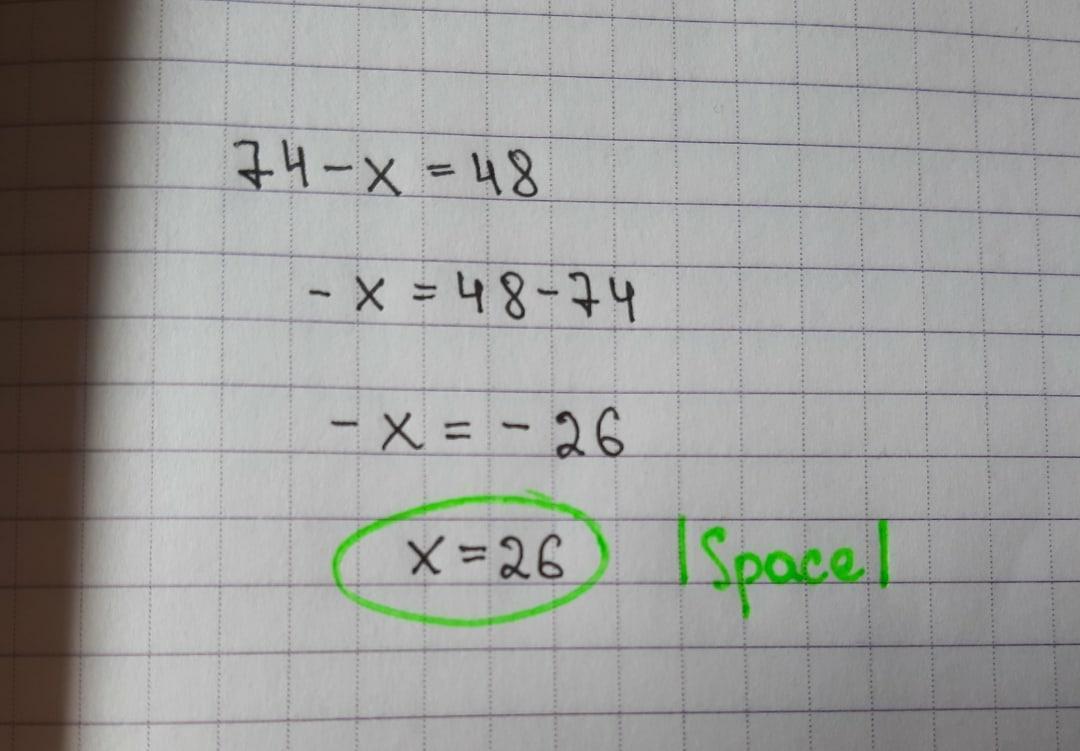 74-x=48
-x=48-74
-x=-26
x=26 |Space|